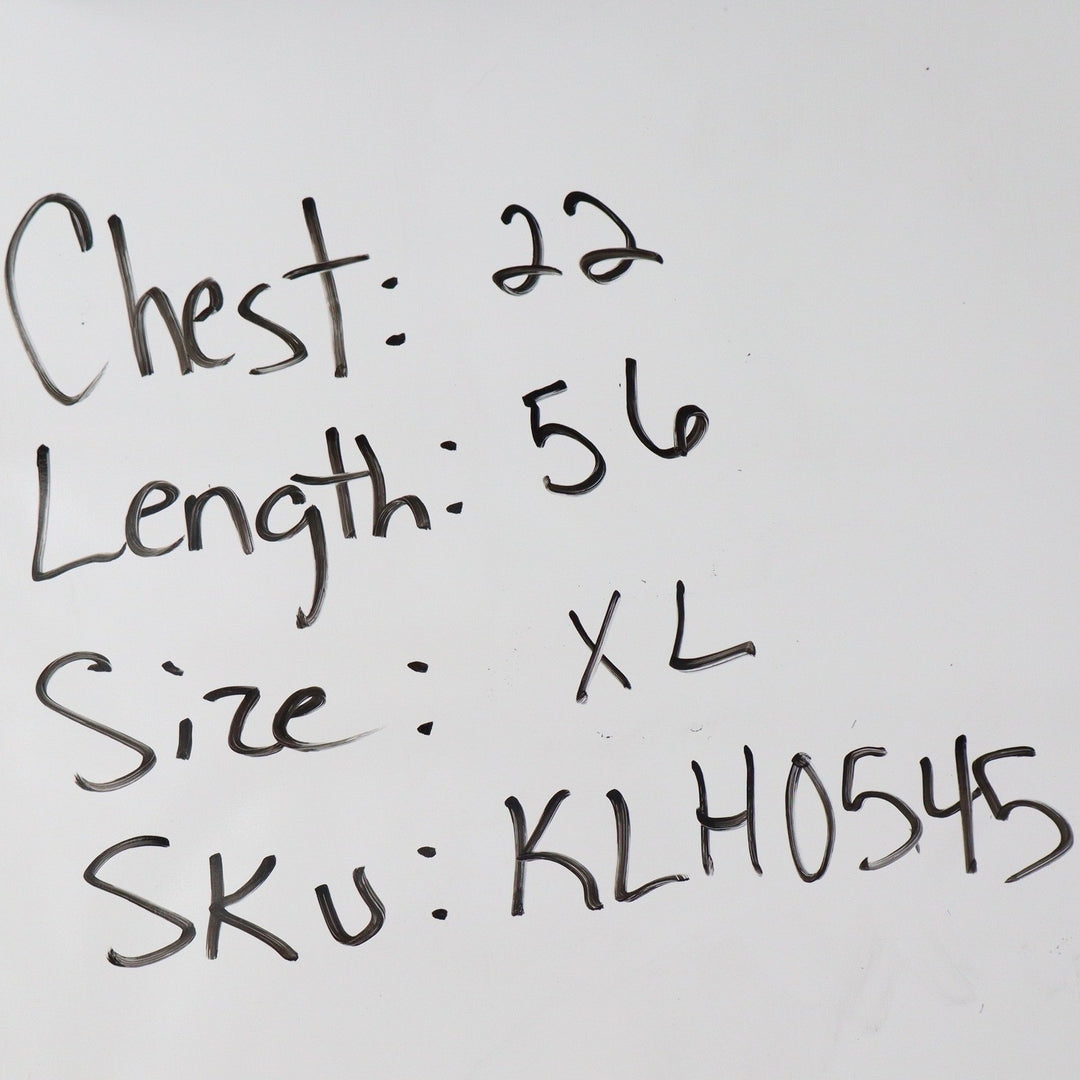 Chest: 22
Length: 56
Size: XL
SKU: KLH0545